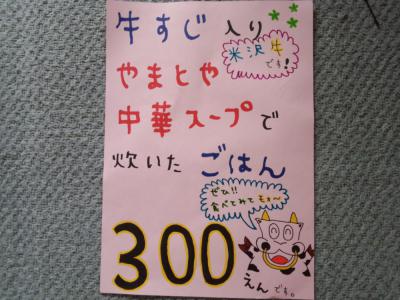 牛すじ入り
米沢牛
です!
やまとや
中華スープで
炊いたごはん
ぜひ!!
食べてみてモォ〜
300
えんです。